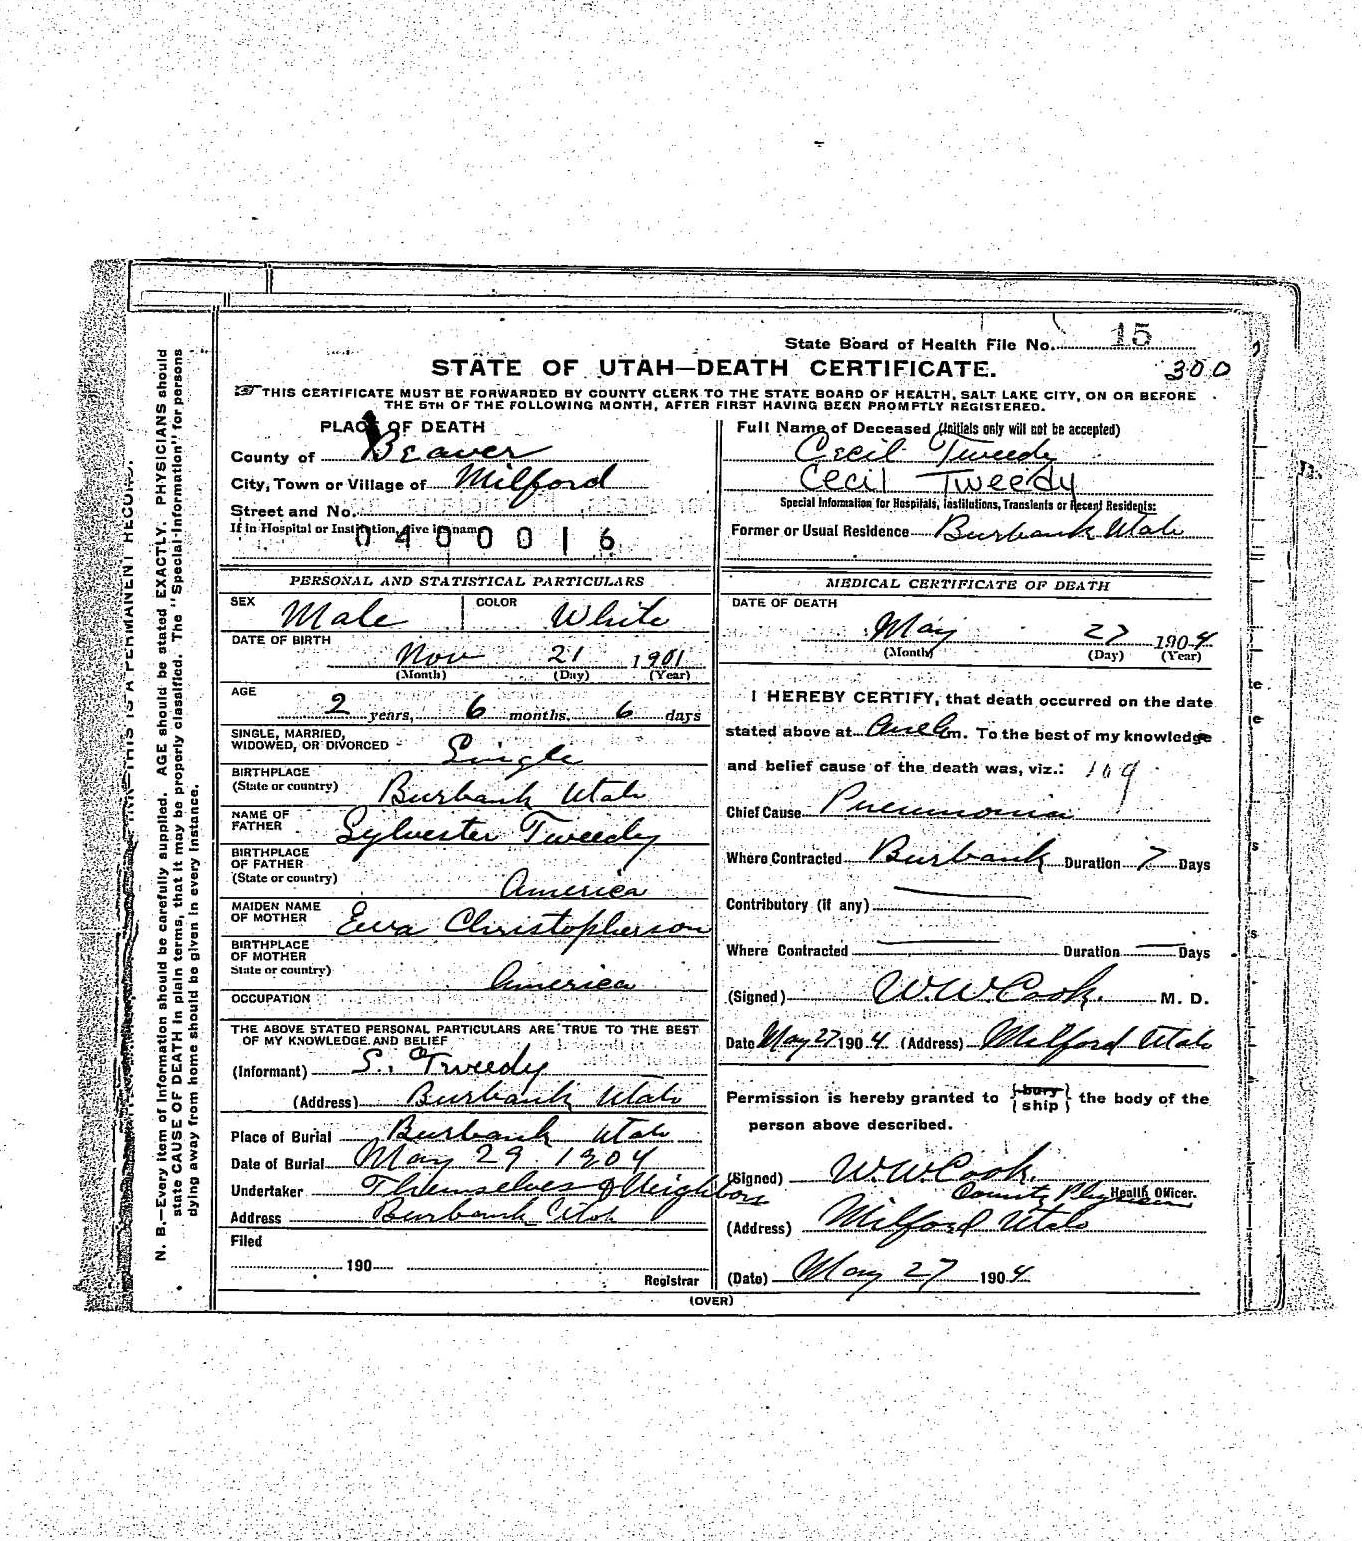 State Board of Health File No. 15
STATE OF UTAH—DEATH CERTIFICATE.
300
THIS CERTIFICATE MUST BE FORWARDED BY COUNTY CLERK TO THE STATE BOARD OF HEALTH, SALT LAKE CITY, ON OR BEFORE
THE 5TH OF THE FOLLOWING MONTH, AFTER FIRST HAVING BEEN PROMPTLY REGISTERED.
PLACE OF DEATH
County of Beaver
City, Town or Village of Milford
Street and No.
If in Hospital or Institution, give its name
0400016
Full Name of Deceased (Initials only will not be accepted)
Cecil Tweedy
Cecil Tweedy
Special Information for Hospitals, Institutions, Transients or Recent Residents:
Former or Usual Residence Burbank Utah
PERSONAL AND STATISTICAL PARTICULARS
SEX Male COLOR White
DATE OF BIRTH
Nov 21 1901
(Month) (Day) (Year)
AGE
2 years, 6 months, 6 days
SINGLE, MARRIED,
WIDOWED, OR DIVORCED Single
BIRTHPLACE
(State or country) Burbank Utah
NAME OF
FATHER Sylvester Tweedy
BIRTHPLACE
OF FATHER
(State or country) America
MAIDEN NAME
OF MOTHER Eva Christopherson
BIRTHPLACE
OF MOTHER
State or country) America
OCCUPATION
THE ABOVE STATED PERSONAL PARTICULARS ARE TRUE TO THE BEST
OF MY KNOWLEDGE AND BELIEF
(Informant) S. Tweedy
(Address) Burbank Utah
Place of Burial Burbank Utah
Date of Burial May 29 1904
Undertaker Themselves & Neighbors
Address Burbank Utah
Filed
190
Registrar
MEDICAL CERTIFICATE OF DEATH
DATE OF DEATH
May 27 1904
(Month) (Day) (Year)
I HEREBY CERTIFY, that death occurred on the date
stated above at m. To the best of my knowledge
and belief cause of the death was, viz.: 109
Chief Cause Pneumonia
Where Contracted Burbank Duration 7 Days
Contributory (if any)
Where Contracted Duration Days
(Signed) W. W. Cook. M. D.
Date May 27 1904 (Address) Milford Utah
Permission is hereby granted to {bury
ship} the body of the
person above described.
(Signed) W. W. Cook.
County Physician Health Officer.
(Address) Milford Utah
(Date) May 27 1904
(OVER)
N. B.—Every item of Information should be carefully supplied. AGE should be stated EXACTLY. PHYSICIANS should
state CAUSE OF DEATH in plain terms, that it may be properly classified. The "Special Information" for persons
dying away from home should be given in every instance.
THIS IS A PERMANENT RECORD.